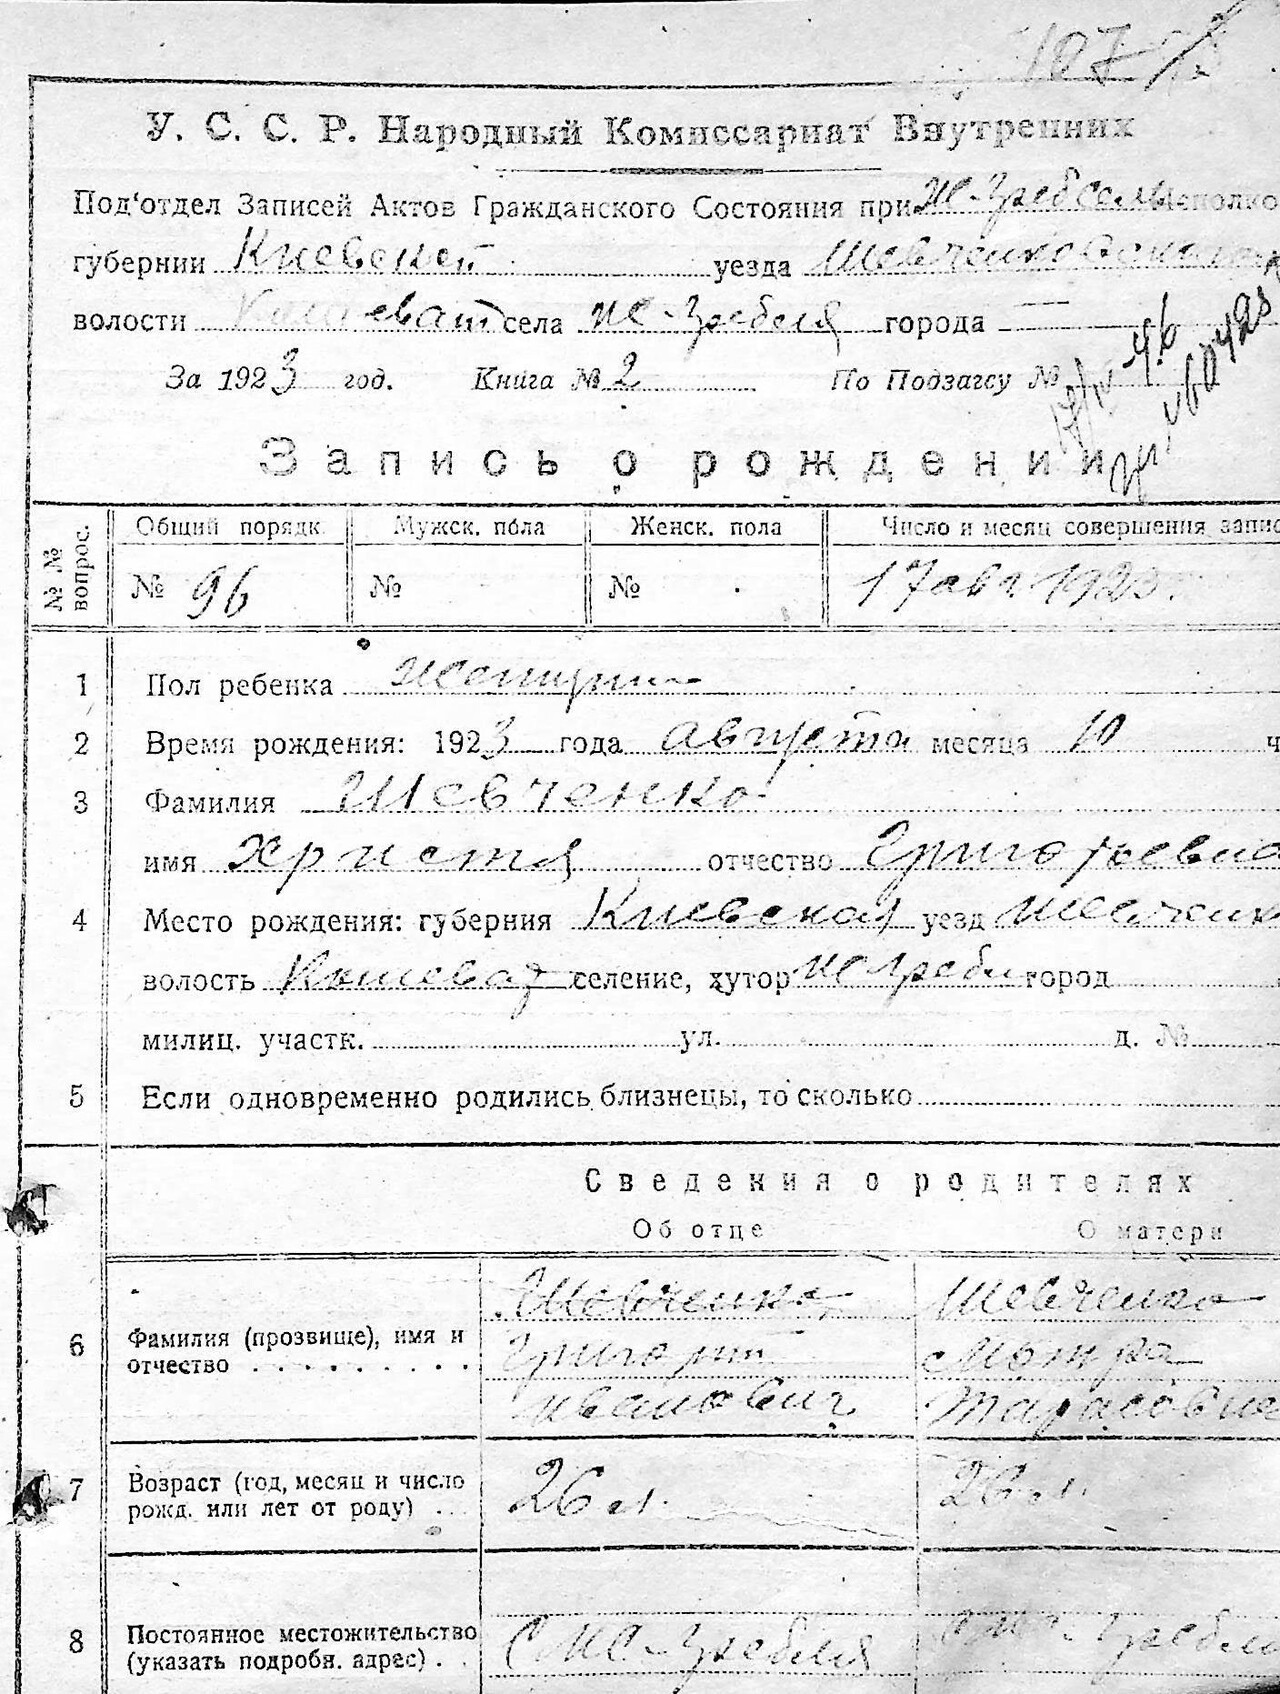 187
У. С. С. Р. Народный Комиссариат Внутренних
Под'отдел Записей Актов Гражданского Состояния при Ж-Гребсельисполко
губернии Киевской уезда Шевченковского
волости села Ж-Гребля города
За 1923 год. Книга № 2 По Подзагсу №
Запись о рождении
№ № вопрос. Общий порядк. Мужск. пола Женск. пола Число и месяц совершения запис
№ 96 № № 17 авг 1923
1 Пол ребенка женщина
2 Время рождения: 1923 года августа месяца 10 ч
3 Фамилия Шевченко
имя Христя отчество Григорьевна
4 Место рождения: губерния Киевская уезд Шевченк
волость Кошеват селение, хутор Ж Гребля город
милиц. участк. ул. д. №
5 Если одновременно родились близнецы, то сколько
Сведения о родителях
Об отце О матери
Шевченко Шевченко
6 Фамилия (прозвище), имя и Григорий Мотря
отчество . . . . . . . . . Иванович Тарасовна
7 Возраст (год, месяц и число 26 л. 26 л.
рожд. или лет от роду) . . .
8 Постоянное местожительство С Ж-Гребля С Ж-Гребля
(указать подробн. адрес) . .